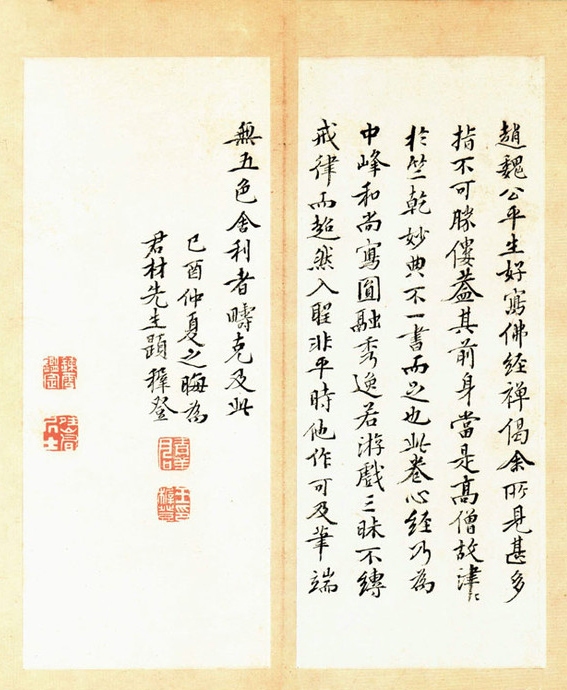 趙魏公平生好寫佛經禅偈余所見甚多
指不可勝僂蓋其前身當是高僧故津〻
於竺乾妙典不一書而足也此卷心經乃為
中峰和尚寫圓融秀逸若游戲三昧不縛
戒律而超然入聖非平時他作可及筆端
無五色舍利者疇克及此
己酉仲夏之晦為
君材先生題穉登
王印穉登